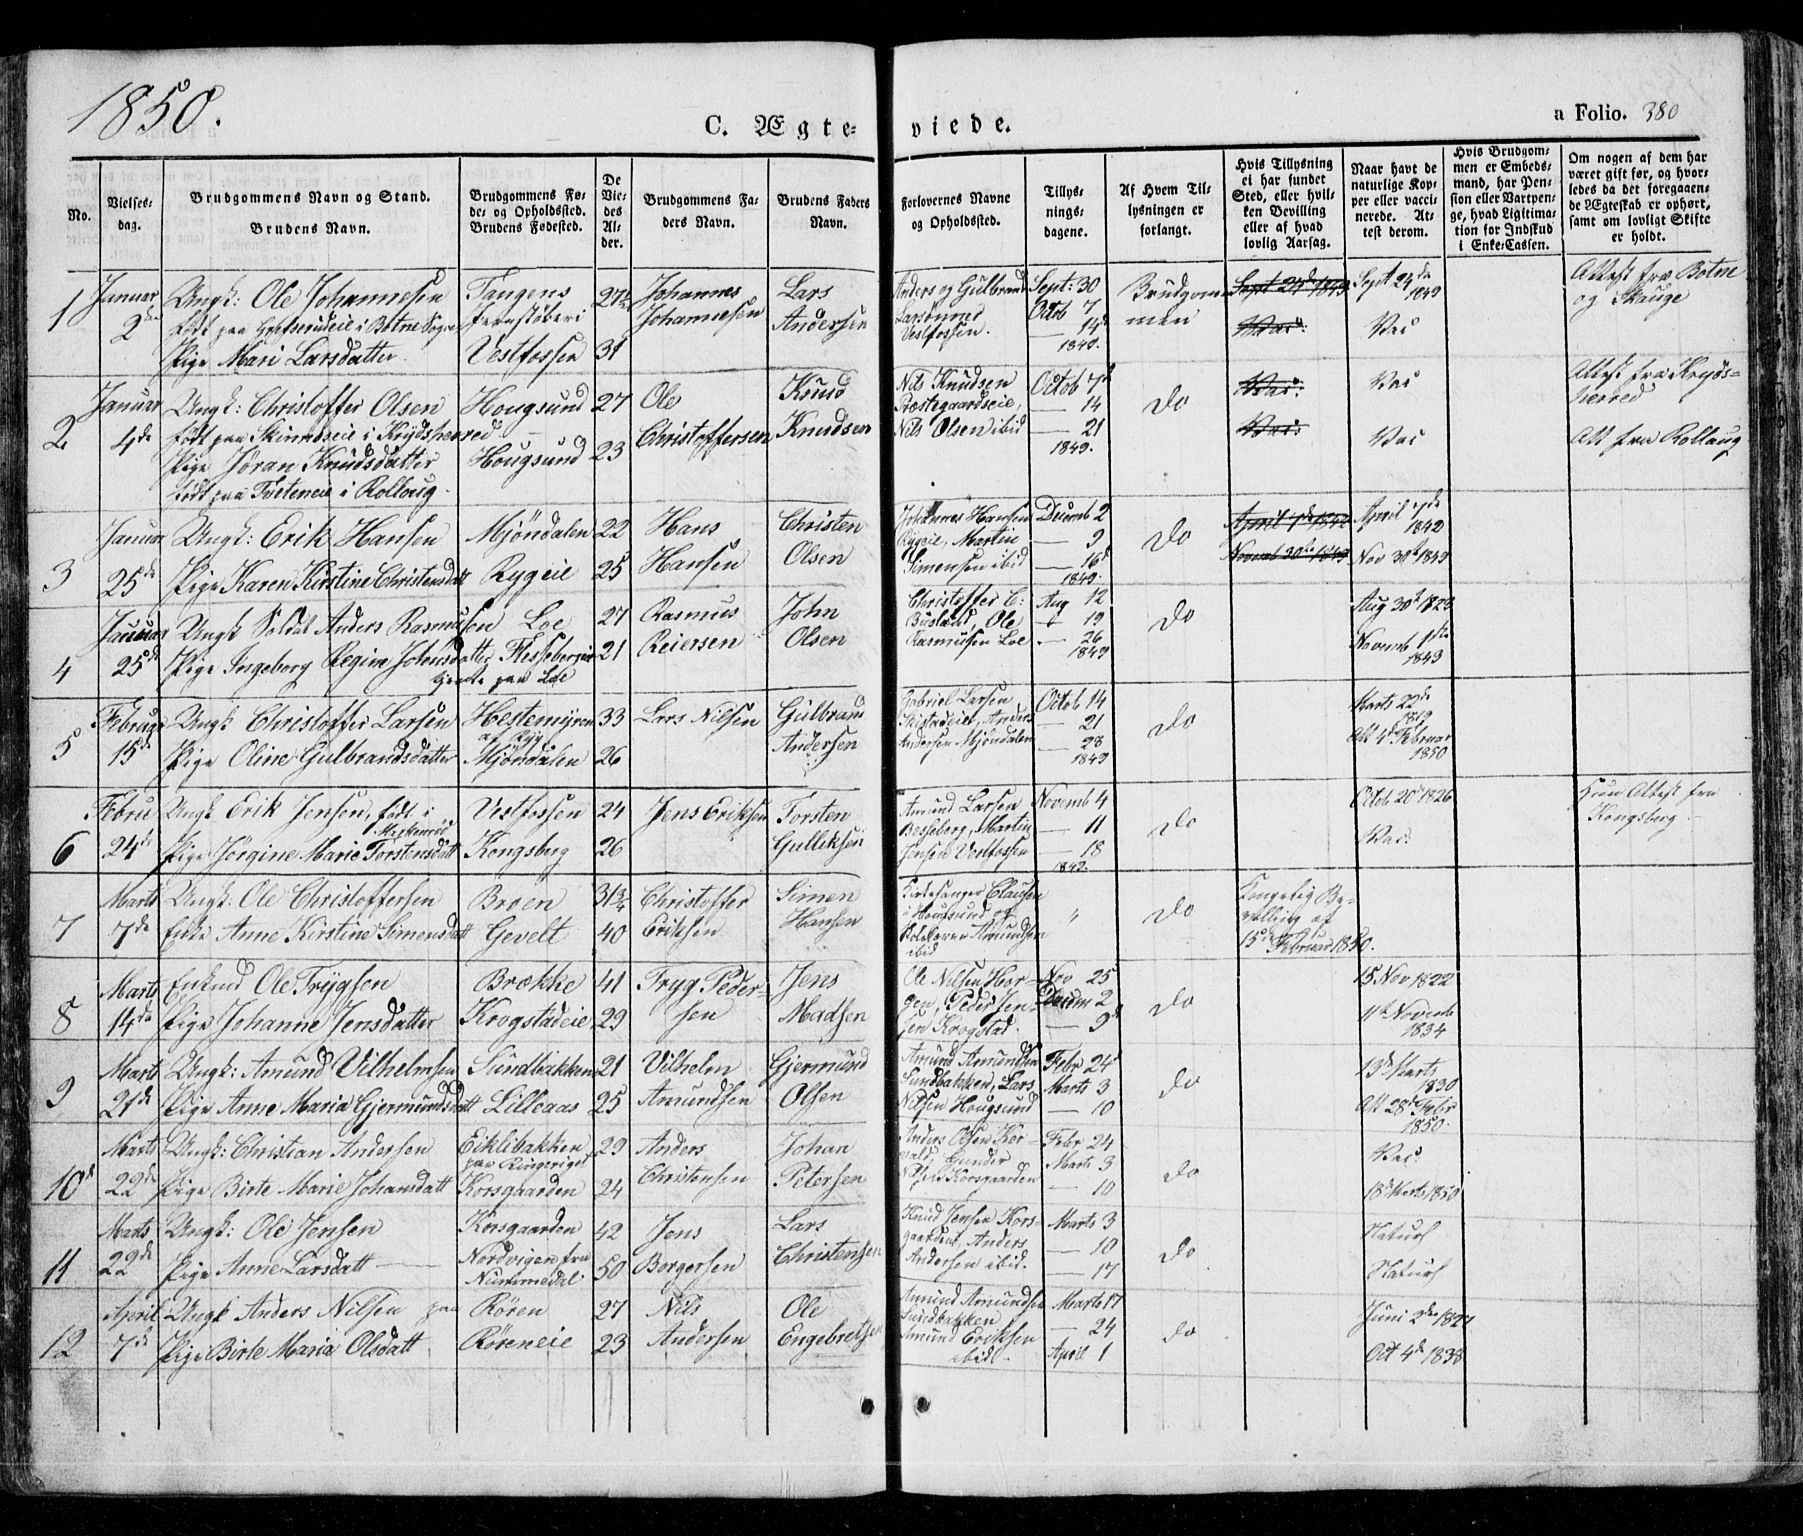 1850.
C. Ægte-
viede.
a Folio. 380
No.
Vielses-
dag.
Brudgommens Navn og Stand.
Brudens Navn.
Brudgommens Fø-
de- og Opholdssted.
Brudens Fødested.
De
Vie-
des
Al-
der.
Brudgommens Fa-
ders Navn.
Brudens Faders
Navn.
Forlovernes Navne
og Opholdssted.
Tillys-
nings-
dagene.
Af Hvem Til-
lysningen er
forlangt.
Hvis Tillysning
ei har fundet
Sted, eller hvil-
ken Bevilling
eller af hvad
lovlig Aarsag.
Naar havt de
naturlige Kop-
per eller vacci-
nerede. At-
test derom.
Hvis Brudgom-
men er Embeds-
mand, har Pen-
sion eller Vartpen-
ge, hvad Ligitima-
tion for Indskud
i Enke-Cassen.
Om nogen af dem har
været gift før, og hvor-
ledes da det foregaaen-
de Ægteskab er ophørt,
samt om lovligt Skifte
er holdt.
1
Januar
2den
Ungk: Ole Johannesen
født paa i Botne Sogn
Pige Mari Larsdatter.
Tangens
Vestfossen
27½
31
Johannes
Johannesen
Lars
Andersen
Anders og Gulbrand
Larsønner
Vestfossen.
Sept: 30
Octob 7
— 14
1849.
Brudgom-
men
Sept 24de 1849
Vac:
Sept 24de
1849
Vac
Attest fra Botne
og Skauge
2
Januar
4de
Ungk: Christoffer Olsen
født paa Skinnæseie i Krydsherred
Pige Jøran Knudsdatter
født paa Tveteneie i Rollaug
Hougsund
Hougsund
27
23
Ole
Christoffersen
Knud
Knudsen
Nils Knudsen
Præstegaardseie,
Nils Olsen ibid
Octob 7de
— 14
— 21
1849.
Do
Vac:
Vac:
Vac
Vac
Attest fra Kryds-
herred
Att fra Rollaug
3
Januar
25de
Ungk: Erik Hansen
Pige Karen Kirstine Christensdatt
Mjøndalen
Rygeie
22
25
Hans
Hansen
Christen
Olsen
Johannes Hansen
Rygeie, Martin
Simensen ibid
Decemb 2
— 9
— 16
1849.
Do
Novemb 30te 1849
Nov 30te 1849
4
Januar
25de
Ungk Soldat Anders Rasmusen
Pige Ingeborg Regine Johnsdatter
tjente paa Loe
Loe
27
21
Rasmus
Reiersen
John
Olsen
Christoffer C:
Buslæt, Ole
Rasmusen Loe
Aug 12
— 19
— 26
1849
Do
Aug 30te 1823
Novemb 1ste
1849
5
Februar
15de
Ungk Christoffer Larsen
Pige Oline Gulbrandsdatter
Hestemyren
af Ryg
Mjøndalen
33
26
Lars Nilsen
Gulbrand
Andersen
Gabriel Larsen
Skistadeie, Anders
Andersen Mjøndalen
Octob 14
— 21
— 28
1849
Do
Marts 22de
1819
Att 4de Februar
1850
6
Febru
24de
Ungk Erik Jensen, født i
Pige Jørgine Marie Torstensdatt
Vestfossen
Kongsberg
24
26
Jens Eriksen
Torsten
Gulliksen
Amund Larsen
Besseberg, Martin
Jensen Vestfossen
Novemb 4
— 11
— 18
1849.
Do
Octob 20de 1826
Vac:
Hun Attest fra
Kongsberg
7
Marts
7de
Ungk: Ole Christoffersen
Enke Anne Kirstine Simensdatt
Broen
Gevelt
31¾
40
Christoffer
Eriksen
Simen
Hansen
Kirkesanger Clausen
i Hougsund og
Amundsen
ibid
"
Do
Kongelig Be-
villing af
15de Februar 1850.
8
Marts
14de
Enkmd Ole Trygsen
Pige Johanne Jensdatter
Brække
Krogstadeie
41
29
Tryg Peder-
sen
Jens
Madsen
Ole Nilsen Hor-
gen, Peder Jen-
sen Krogstad.
Nov 25
Decem 2
— 9
Do
15 Nov 1822
11te Novemb
1834
9
Marts
21de
Ungk: Amund Vilhelmsen
Pige Anne Maria Gjermundsdatt
Sundbakken
Lilleaas
21
25
Vilhelm
Amundsen
Gjermund
Olsen
Amund Amundsen
Sundbakken, Lars
Nilsen Hougsund
Febr 24
Marts 3
— 10
Do
13de Marts
1830
Att 28de Febr
1850.
10
Marts
22de
Ungk: Christian Andersen
Pige Birte Marie Johansdatt
Eiklibakken
paa Ringeriget
Korsgaarden
29
24
Anders
Christensen
Johan
Petersen
Anders Olsen Ker-
, Gunder
Korsgaarden
Febr 24
Marts 3
— 10
Do
Vac:
18de Marts 1850
11
Marts
22de
Ungk: Ole Jensen
Pige Anne Larsdatt
Korsgaarden
Nordvigen fra
Nummedal
42
50
Jens
Borgersen
Lars
Christensen
Knud Jensen Kors-
gaarden, Anders
Andersen ibid.
Marts 3
— 10
— 17
Do
Naturl
Naturl
12
April
7de
Ungk Anders Nilsen paa
Pige Birte Maria Olsdatt
Røren
Røreneie
27
23
Nils
Andersen
Ole
Engebretsen
Amund Amundsen
Sundbakken
Amund Eriksen
ibid.
Marts 17
— 24
April 1
Do
Juni 2den 1827
Oct 4de 1838